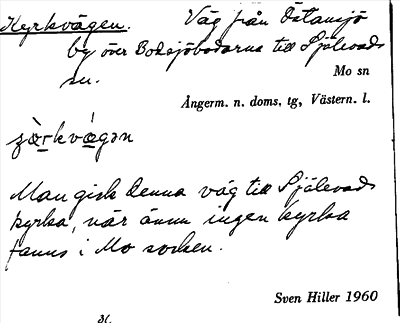 Kyrkvägen. Väg från Östansjö
by över Bodsjöbodarna till Själevads
sn.
Mo sn
Ångerm. n. doms. tg, Västern. l.
Man gick denna väg till Själevads
kyrka, när ännu ingen kyrka
fanns i Mo socken.
Sven Hiller 1960